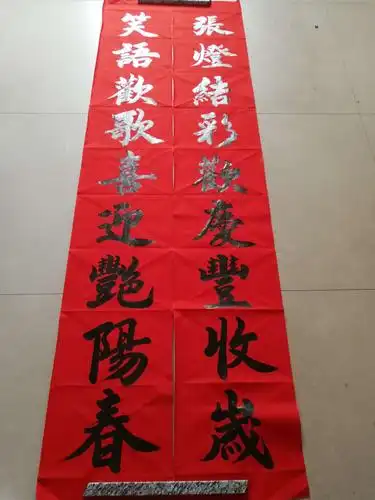 張燈結彩歡慶豐收歲
笑語歡歌喜迎艷陽春